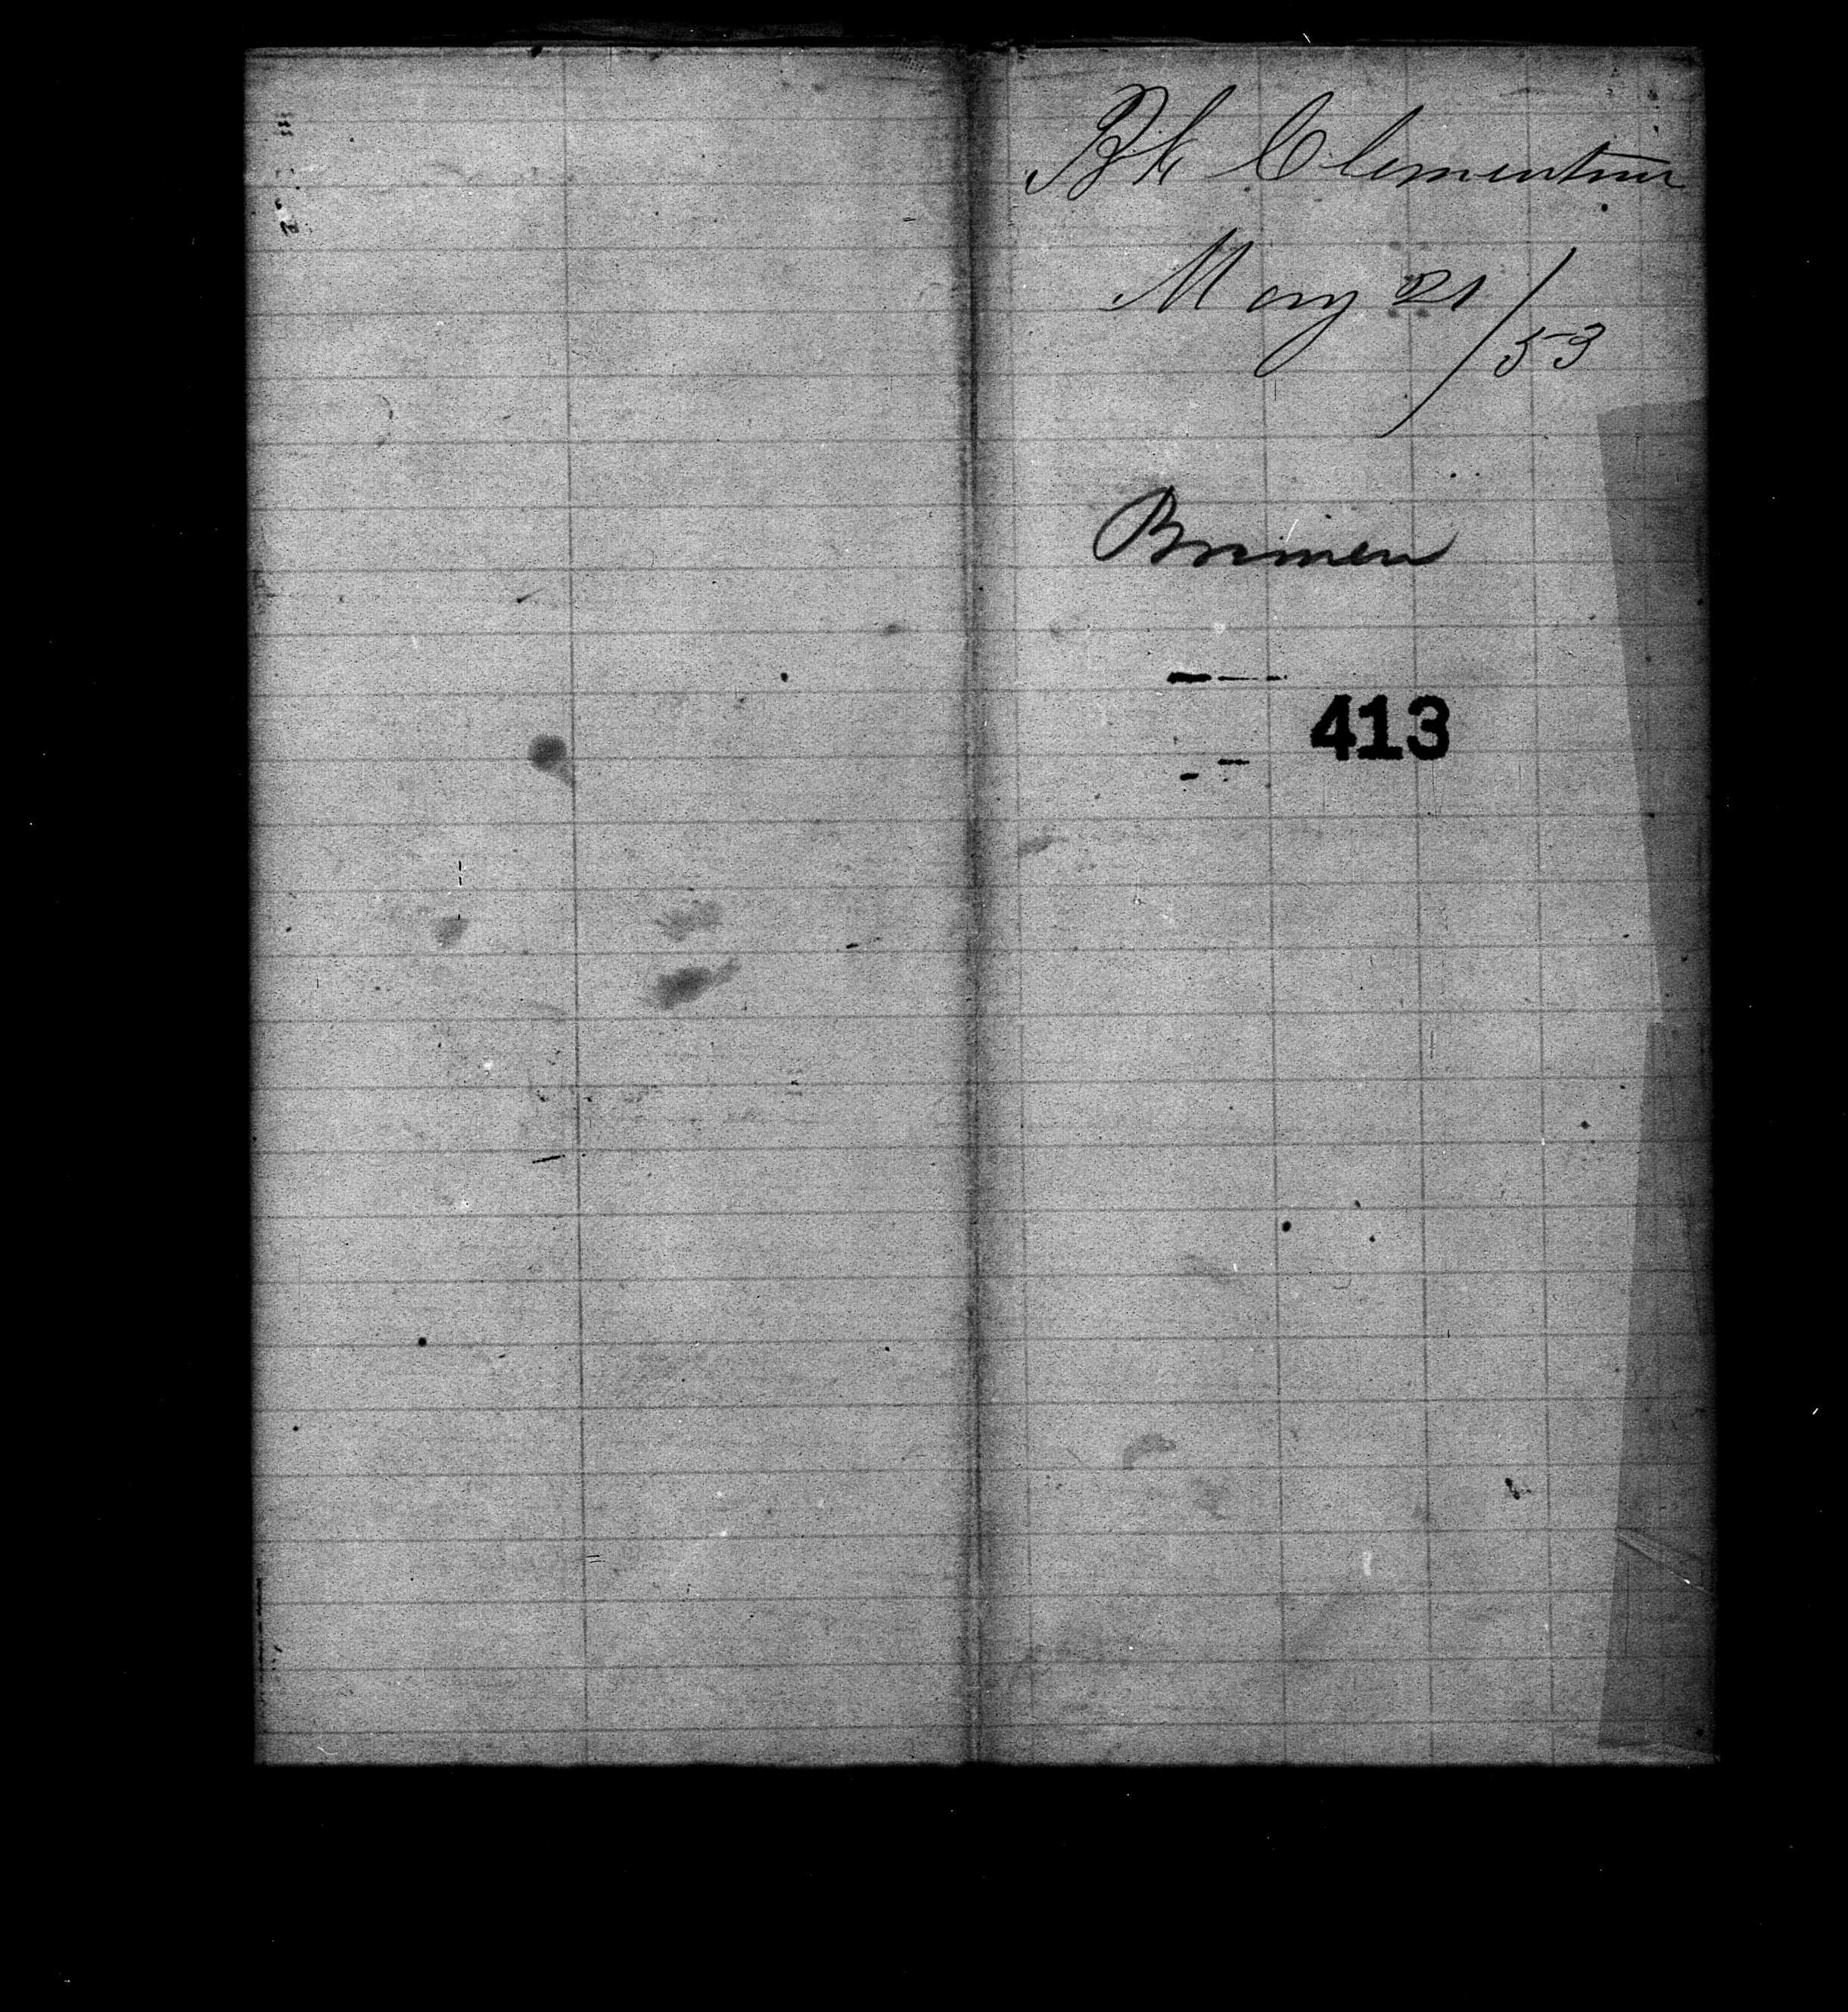 Bk Clementine
May 21/53
Bremen
413